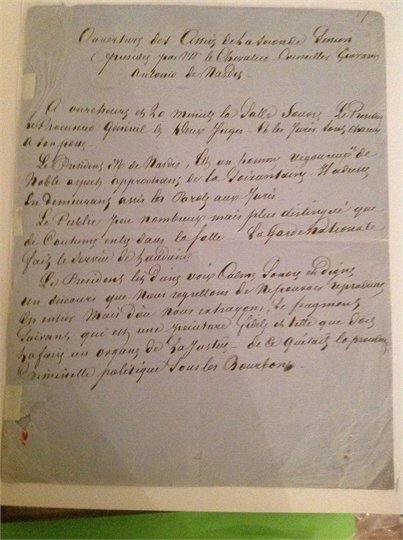 Ouverture des Assises de la seconde Session
présidée par Mr le Chevalier Conseiller Giovanni
Antonio de Nardis
A onze heures et 20 minutes la Salle s'ouvre. Le Président
Le Procureur Général & deux Juges. & les Jurés sont chacun
à son poste.
Le Président Mr de Nardis, est un homme vigoureux de
Noble aspect approchant de la Soixantaine. Il adresse
En demeurant assis la Parole aux Jurés
Le Public peu nombreux mais plus distingué que
de Coutume entre dans la salle. La Garde Nationale
fait le Service de l'audience
Le Président lit d'une voix Calme Sonore et Digne
un discours que nous regrettons de ne pouvoir reproduire
en entier Mais dont nous extrayons le fragment
Suivant, qui est une peinture fidèle et telle que doit
la faire un organe de la Justice - de ce qu'était la procédure
Criminelle politique sous les Bourbons.